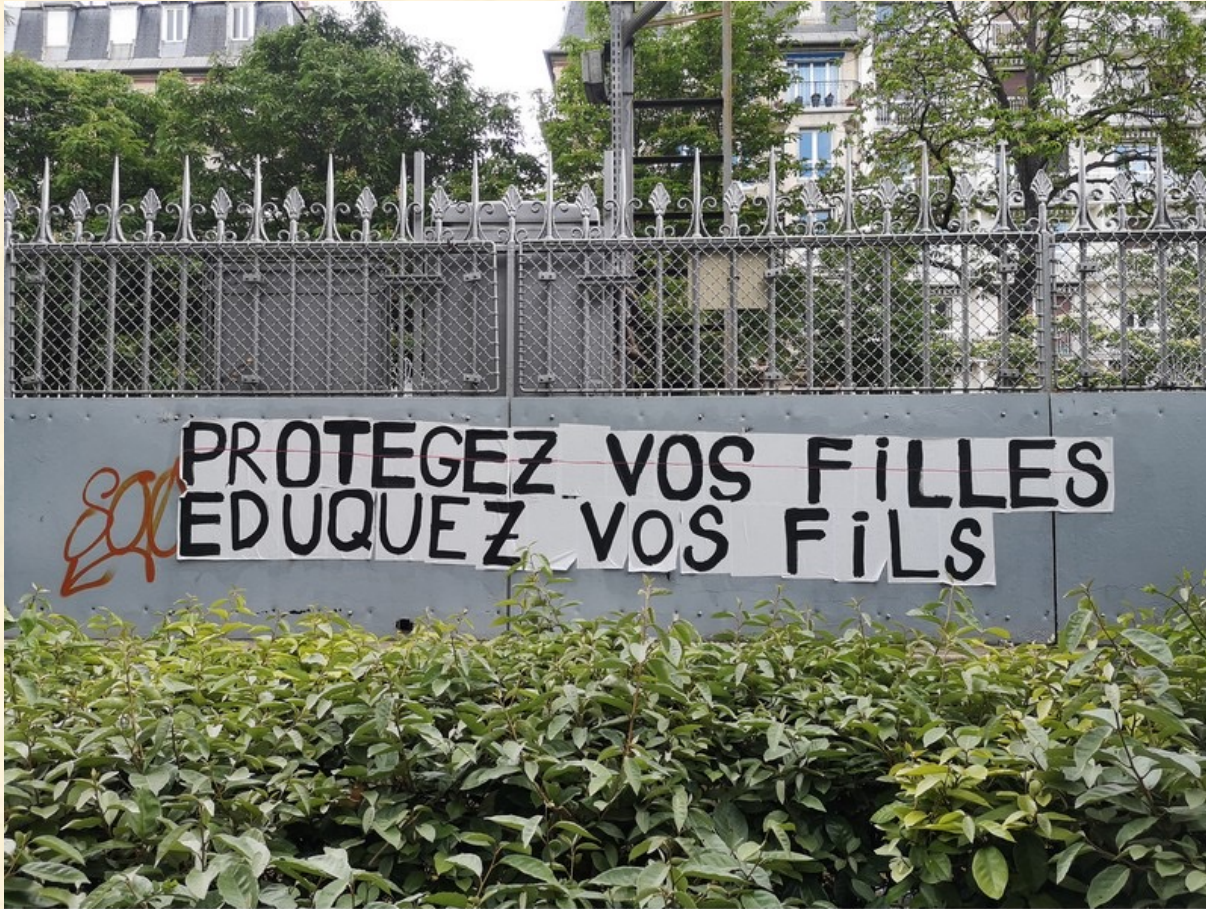 PROTEGEZ VOS FiLLES
EDUQUEZ VOS FiLS